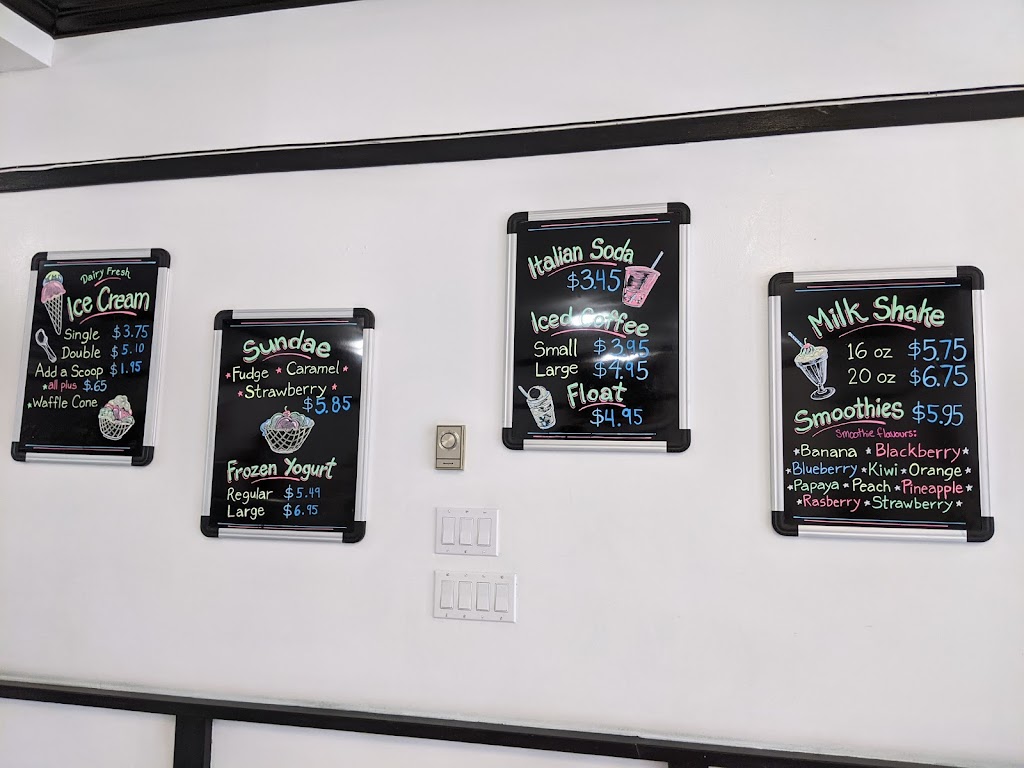 Dairy Fresh
Ice Cream
Single $3.75
Double $5.10
Add a Scoop $1.95
*all plus $.65
*Waffle Cone
Sundae
*Fudge *Caramel*
*Strawberry*
$5.85
Frozen Yogurt
Regular $5.49
Large $6.95
Italian Soda
$3.45
Iced Coffee
Small $3.95
Large $4.95
Float
$4.95
Milk Shake
16 oz $5.75
20 oz $6.75
Smoothies $5.95
Smoothie flavours:
*Banana *Blackberry*
*Blueberry *Kiwi *Orange*
*Papaya *Peach *Pineapple*
*Rasberry *Strawberry*